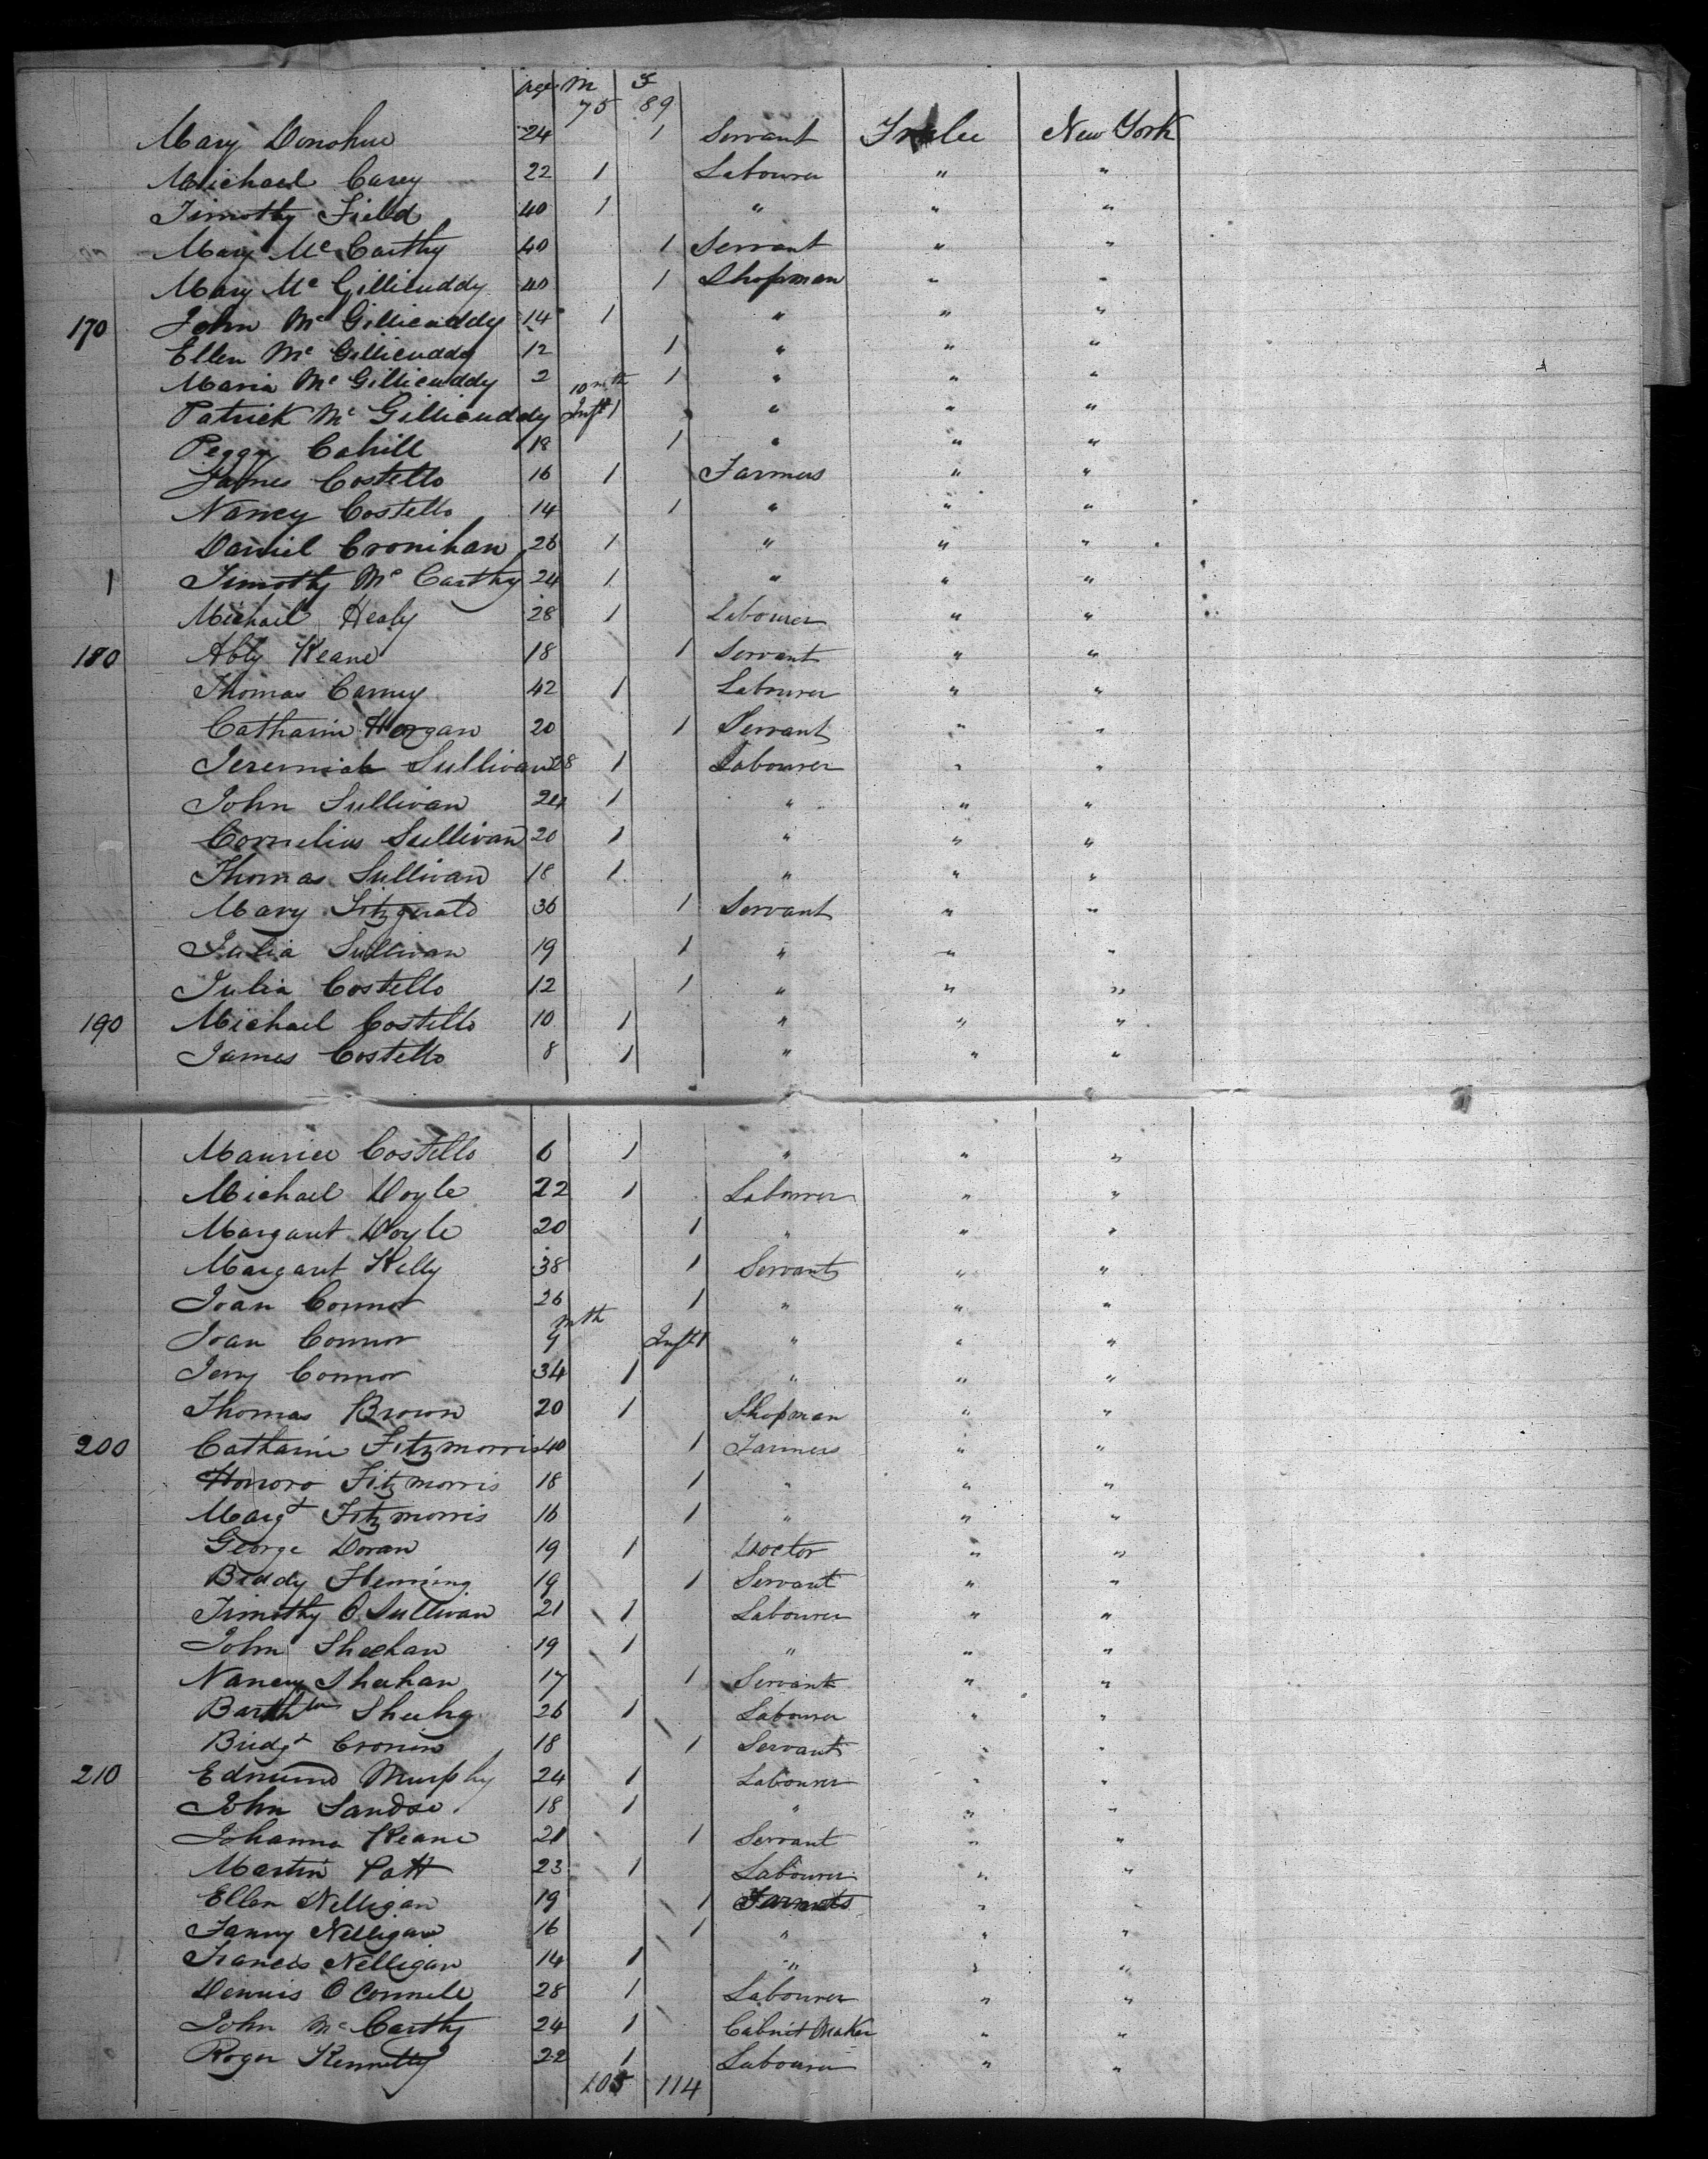 age M F
75 89
Mary Donohue 24 1 Servant Tralee New York
Michael Carey 22 1 Labourer " "
Timothy Field 40 1 " " "
Mary Mc Carthy 40 1 Servant " "
Mary Mc Gillicuddy 40 1 Shopman " "
170 John Mc Gillicuddy 14 1 " " "
Ellen Mc Gillicuddy 12 1 " " "
Maria Mc Gillicuddy 2 1 " " "
Patrick Mc Gillicuddy 10 mth Inft 1 " " "
Peggy Cahill 18 1 " " "
James Costello 16 1 Farmers " "
Nancy Costello 14 1 " " "
Daniel Cronihan 26 1 " " "
1 Timothy Mc Carthy 24 1 " " "
Michael Healy 28 1 Labourer " "
180 Abby Keane 18 1 Servant " "
Thomas Carney 42 1 Labourer " "
Catharine Horgan 20 1 Servant " "
Jeremiah Sullivan 28 1 Labourer " "
John Sullivan 24 1 " " "
Cornelius Sullivan 20 1 " " "
Thomas Sullivan 18 1 " " "
Mary Fitzgerald 36 1 Servant " "
Julia Sullivan 19 1 " " "
Julia Costello 12 1 " " "
190 Michael Costello 10 1 " " "
James Costello 8 1 " " "
Maurice Costello 6 1 " " "
Michael Doyle 22 1 Labourer " "
Margaret Doyle 20 1 " " "
Margaret Kelly 38 1 Servant " "
Joan Connor 26 1 " " "
Joan Connor 9 mth Inft 1 " " "
Jerry Connor 34 1 " " "
Thomas Brown 20 1 Shopman " "
200 Catharine Fitzmorris 40 1 Farmers " "
Honoro Fitzmorris 18 1 " " "
Margt Fitzmorris 16 1 " " "
George Doran 19 1 Doctor " "
Biddy Fleming 19 1 Servant " "
Timothy O Sullivan 21 1 Labourer " "
John Sheehan 19 1 " " "
Nancy Sheehan 17 1 Servant " "
Barthlw Sheehy 26 1 Labourer " "
Bridgt Cronin 18 1 Servant " "
210 Edmund Murphy 24 1 Labourer " "
John Landse 18 1 " " "
Johanna Keane 21 1 Servant " "
Martin Patt 23 1 Labourer " "
Ellen Nelligan 19 1 Farmers " "
Fanny Nelligan 16 1 " " "
Francis Nelligan 14 1 " " "
Dennis O Connell 28 1 Labourer " "
John Mc Carthy 24 1 Cabinet Maker " "
Roger Kennelly 22 1 Labourer " "
105 114